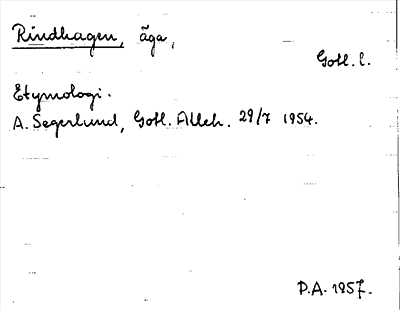 Rindhagen, äga,
Gotl. l.
Etymologi.
A. Segerlund, Gotl. Alleh. 29/7 1954.
P.A. 1957.